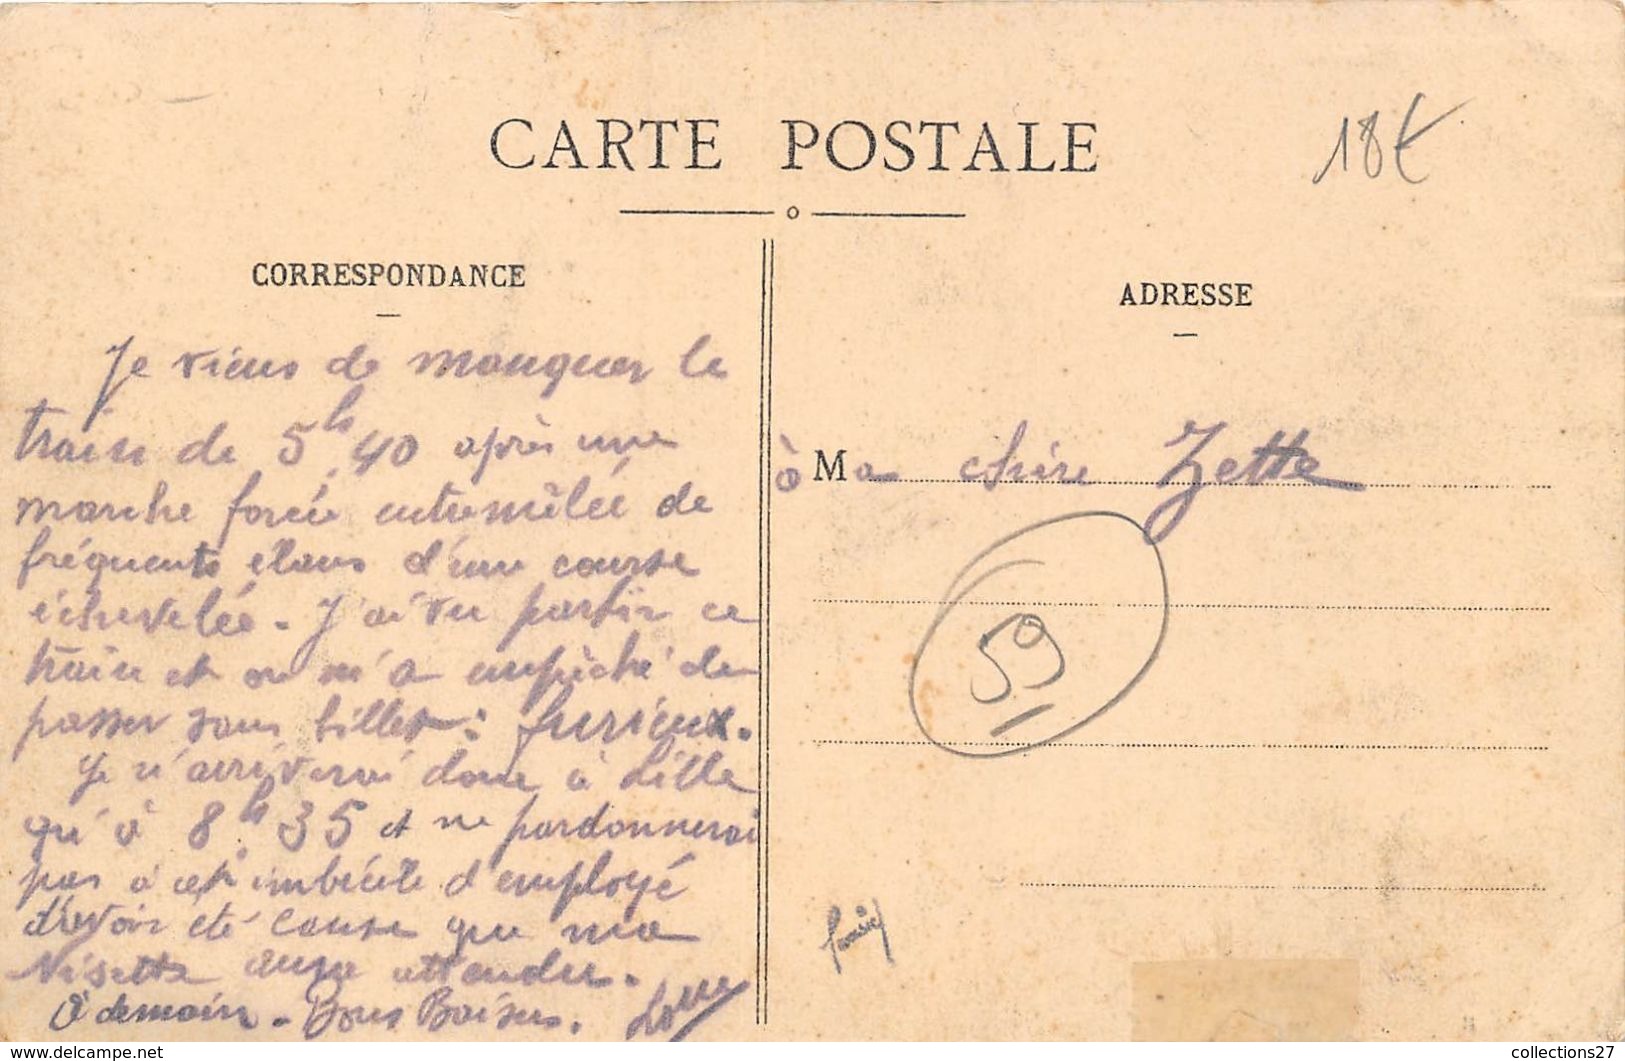 CARTE POSTALE
18€
CORRESPONDANCE
ADRESSE
Je viens de manquer le
train de 5h40 après une
marche forcée entremêlée de
fréquents élans d'une course
échevelée. J'ai vu partir ce
train et on m'a empêché de
passer sans billet : furieux.
Je n'arriverai donc à Lille
qu'à 8h35 et ne pardonnerai
pas à cet imbécile d'employé
d'avoir été cause que ma
Nisette aura attendu.
à demain. Bons Baisers.
à Ma chère Zette
59
collections27
© delcampe.net